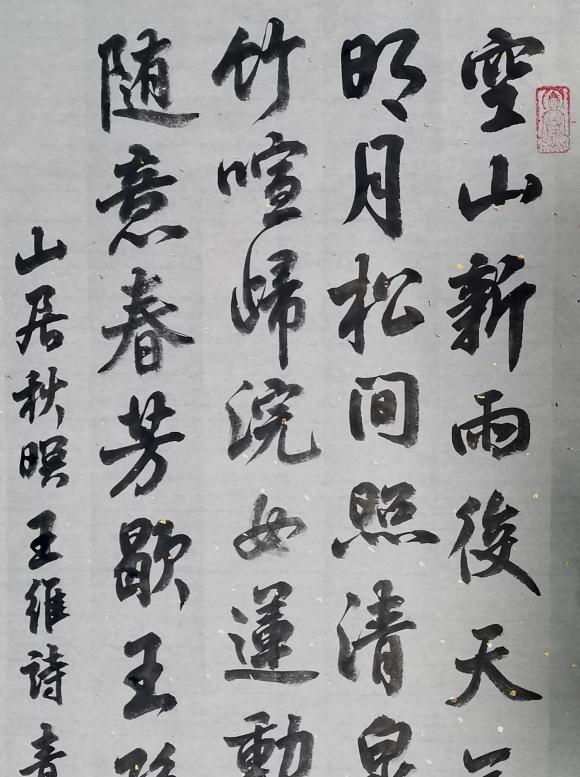 空山新雨後天
明月松间照清泉
竹喧歸浣女蓮動
随意春芳歇王
山居秋暝王維詩